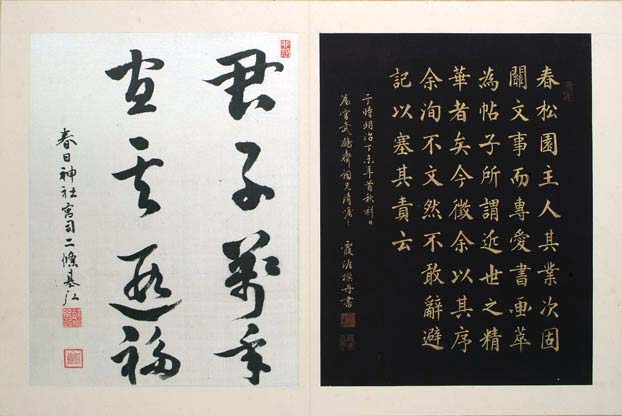 春松園主人其業次固
關文事而專愛書画萃
為帖子所謂近世之精
華者矣今徵余以其序
余洵不文然不敢辭避
記以塞其責云
于時明治丁未年首秋祥日
為宮武鶴齋詞兄清
書
君子萬年
宜其遐福
春日神社宮司二條基弘